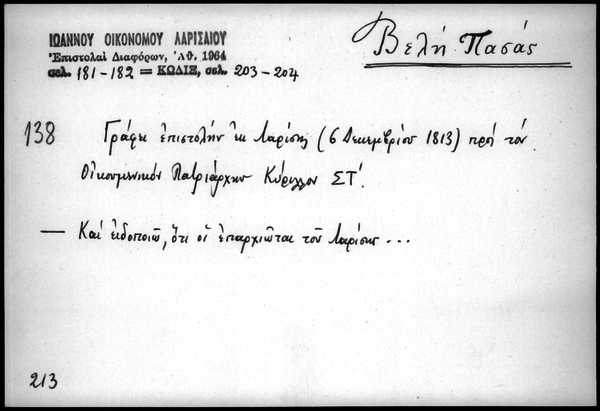 ΙΩΑΝΝΟΥ ΟΙΚΟΝΟΜΟΥ ΛΑΡΙΣΑΙΟΥ
Ἐπιστολαὶ Διαφόρων, Ἀθ. 1964
σελ. 181-182 = ΚΩΔΙΞ, σελ. 203-204
Βελή Πασάς
138 Γράφει ἐπιστολὴν ἐκ Λαρίσης (6 Δεκεμβρίου 1813) πρὸς τὸν
Οἰκουμενικὸν Πατριάρχην Κύριλλον ΣΤ΄.
— Καὶ εἰδοποιῶ, ὅτι οἱ ἐπαρχιῶται τοῦ Λαρίσης ...
213